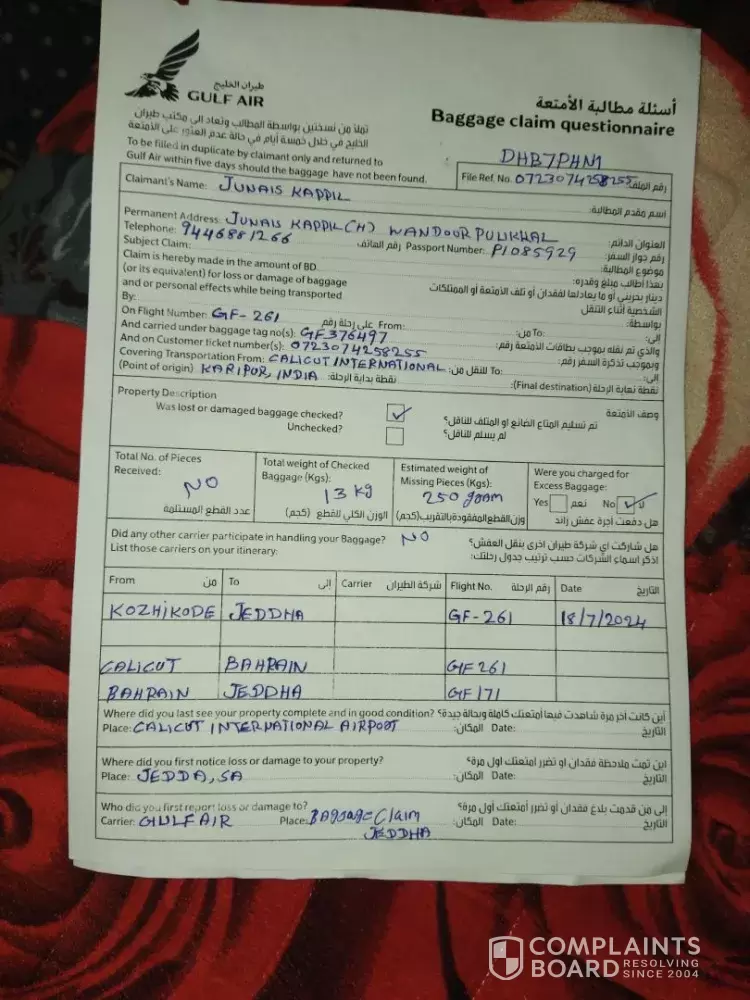 طيران الخليج
GULF AIR
أسئلة مطالبة الأمتعة
Baggage claim questionnaire
تملأ من نسختين بواسطة المطالب وتعاد الى مكتب طيران
الخليج في خلال خمسة أيام في حالة عدم العثور على الأمتعة
To be filled in duplicate by claimant only and returned to
Gulf Air within five days should the baggage have not been found.
DHB7PHN1
File Ref. No. 0723074258255 رقم الملف
Claimant's Name: JUNAIS KAPPIL اسم مقدم المطالبة:
Permanent Address: JUNAIS KAPPIL(H) WANDOOR PULIKHAL العنوان الدائم:
Telephone: 9446881266 رقم الهاتف Passport Number: P1085929 رقم جواز السفر:
Subject Claim: موضوع المطالبة:
Claim is hereby made in the amount of BD. بهذا أطالب مبلغ وقدره:
(or its equivalent) for loss or damage of baggage دينار بحريني أو ما يعادلها لفقدان أو تلف الأمتعة أو الممتلكات
and or personal effects while being transported الشخصية أثناء التنقل
By: بواسطة:
On Flight Number: GF-261 على رحلة رقم From: من: To: إلى:
And carried under baggage tag no(s): GF376497 والذي تم نقله بموجب بطاقات الأمتعة رقم:
And on Customer ticket number(s): 0723074258255 وبموجب تذكرة السفر رقم:
Covering Transportation From: CALICUT INTERNATIONAL للنقل من: To: إلى:
(Point of origin) KARIPUR, INDIA نقطة بداية الرحلة: (Final destination) نقطة نهاية الرحلة:
Property Description وصف الأمتعة
Was lost or damaged baggage checked? ✓ تم تسليم المتاع الضائع او المتلف للناقل؟
Unchecked? لم يسلم للناقل؟
Total No. of Pieces Received: NO عدد القطع المستلمة
Total weight of Checked Baggage (Kgs): 13 kg الوزن الكلي للقطع (كجم)
Estimated weight of Missing Pieces (Kgs): 250 gram وزن القطع المفقودة بالتقريب (كجم)
Were you charged for Excess Baggage: Yes نعم No ✓ لا هل دفعت أجرة عفش زائد
Did any other carrier participate in handling your Baggage? NO هل شاركت اي شركة طيران اخرى بنقل العفش؟
List those carriers on your itinerary: اذكر اسماء الشركات حسب ترتيب جدول رحلتك:
From من To إلى Carrier شركة الطيران Flight No. رقم الرحلة Date التاريخ
KOZHIKODE JEDDHA GF-261 18/7/2024
CALICUT BAHRAIN GF 261
BAHRAIN JEDDHA GF 171
Where did you last see your property complete and in good condition? أين كانت أخر مرة شاهدت فيها أمتعتك كاملة وبحالة جيدة؟
Place: CALICUT INTERNATIONAL AIRPOOT المكان: Date: التاريخ
Where did you first notice loss or damage to your property? اين تمت ملاحظة فقدان او تضرر امتعتك اول مرة؟
Place: JEDDA, SA المكان: Date: التاريخ
Who did you first report loss or damage to? إلى من قدمت بلاغ فقدان أو تضرر أمتعتك أول مرة؟
Carrier: GULF AIR Place: BAggage Claim المكان: Date: التاريخ
JEDDHA
COMPLAINTS
BOARD RESOLVING
SINCE 2004